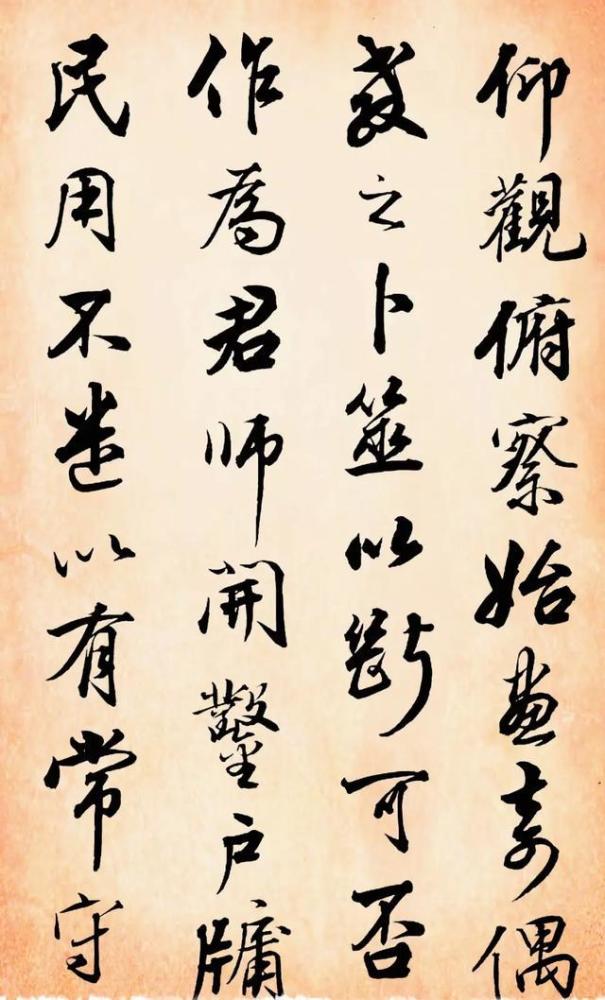 仰觀俯察始畫奇偶
教之卜筮以斷可否
作為君師開鑿户牖
民用不迷以有常守